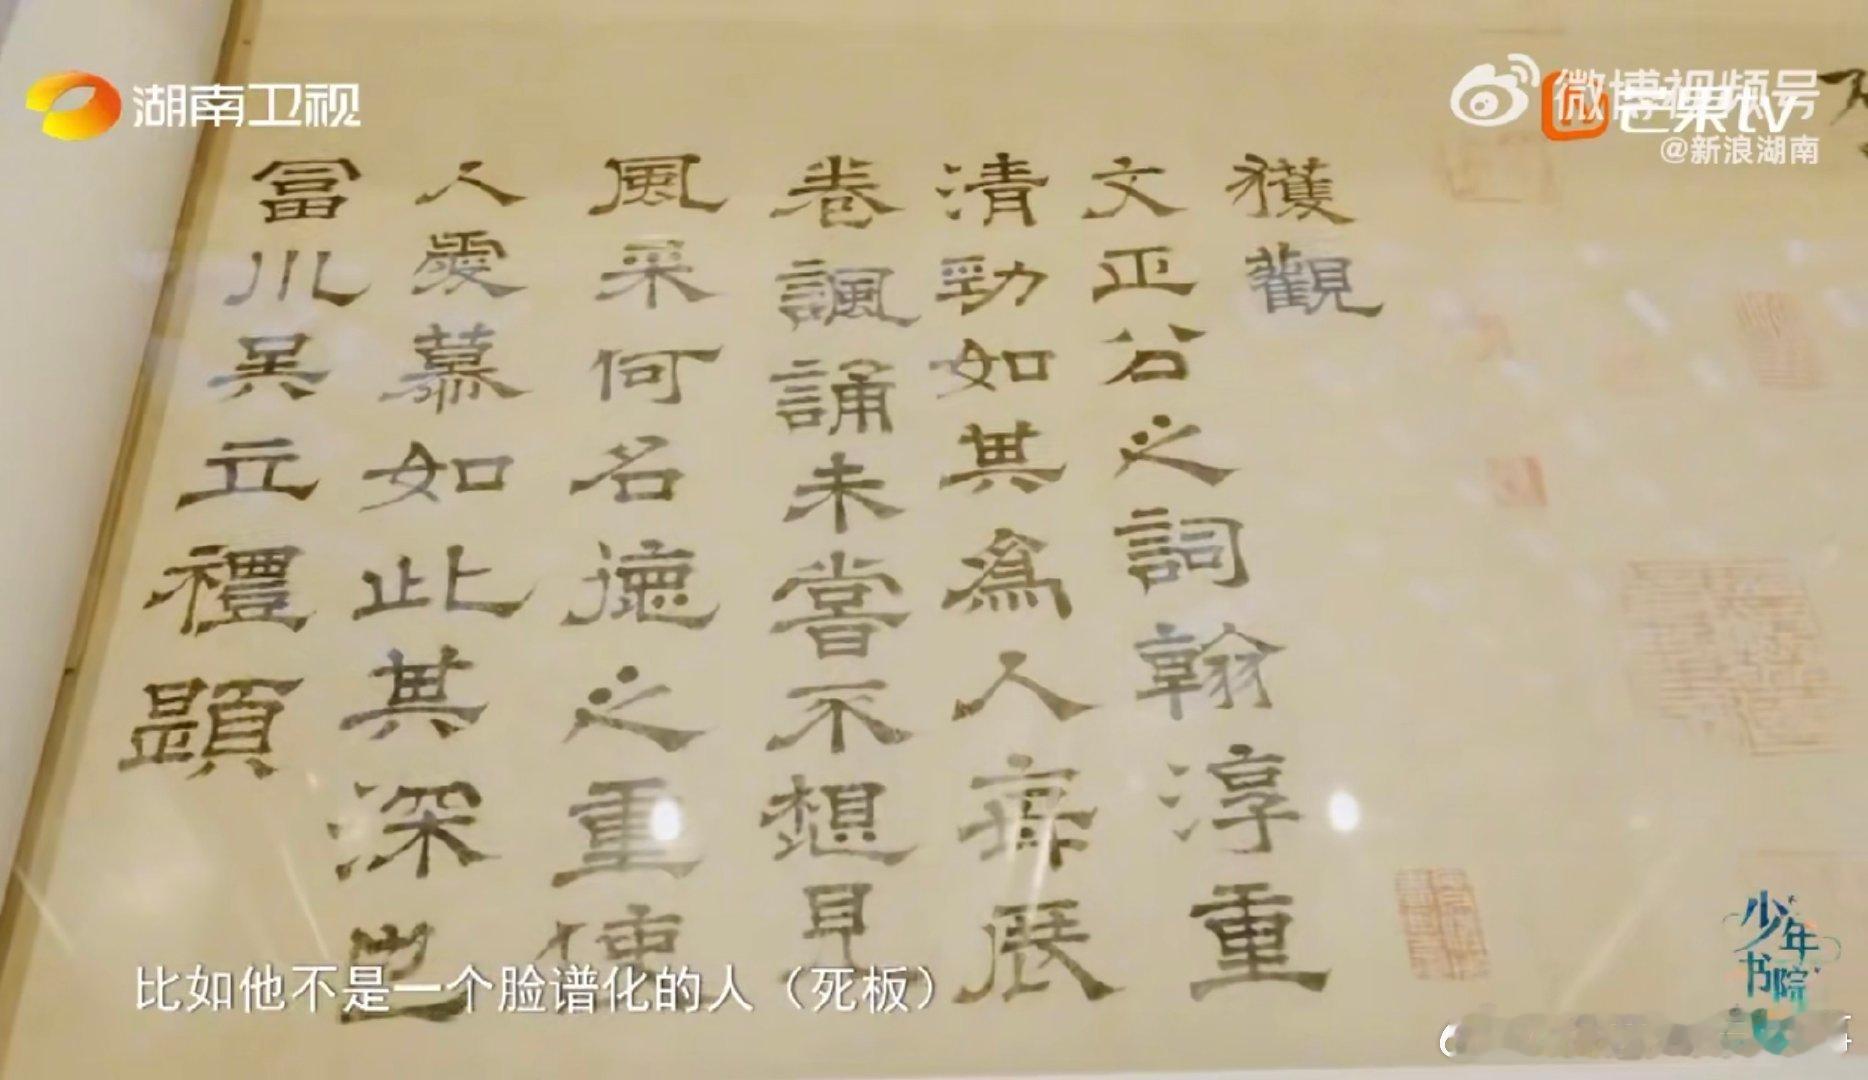 湖南卫视
微博视频号
芒果tv
@新浪湖南
獲觀
文正公之詞翰淳重
清勁如其爲人每展
卷諷誦未嘗不想見
風采何名德之重使
人愛慕如此其深也
冨川吳立禮題
比如他不是一个脸谱化的人（死板）
少年书院